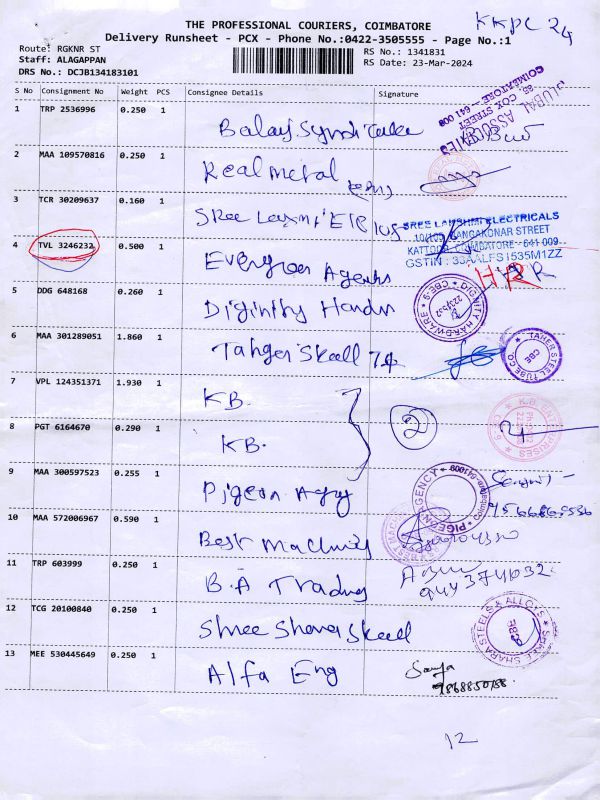 THE PROFESSIONAL COURIERS, COIMBATORE
KKPC 24
Delivery Runsheet - PCX - Phone No.:0422-3505555 - Page No.:1
Route: RGKNR ST
RS No.: 1341831
Staff: ALAGAPPAN
RS Date: 23-Mar-2024
DRS No.: DCJB134183101
S No Consignment No Weight PCS Consignee Details Signature
GLOBAL ASSOCIATES
COX STREET
COIMBATORE - 641 008
1 TRP 2536996 0.250 1 Balaji Syndicate
2 MAA 109570816 0.250 1 Real metal
3 TCR 30209637 0.160 1 Sree Laxmi Ele
SREE LAKSHMI ELECTRICALS
KATTOOR, COIMBATORE - 641 009
GSTIN : 33AALFS1535M1ZZ
4 TVL 3246232 0.500 1 Evergreen Agents
5 DDG 648168 0.260 1
DIGNITY HARDWARE
CBE-9
6 MAA 301289051 1.860 1
TAHER STEEL TUBE CO.
CBE
7 VPL 124351371 1.930 1 KB.
8 PGT 6164670 0.290 1 KB. 2
K.B. ENTERPRISES
9 MAA 300597523 0.255 1 Pigeon Agy
PIGEON AGENCY
Coimbatore-641009
10 MAA 572006967 0.590 1 Best
11 TRP 603999 0.250 1 B.A Trading
12 TCG 20100840 0.250 1
SHREE SHARA STEELS & ALLOYS
CBE
13 MEE 530445649 0.250 1 Alfa Eng
12